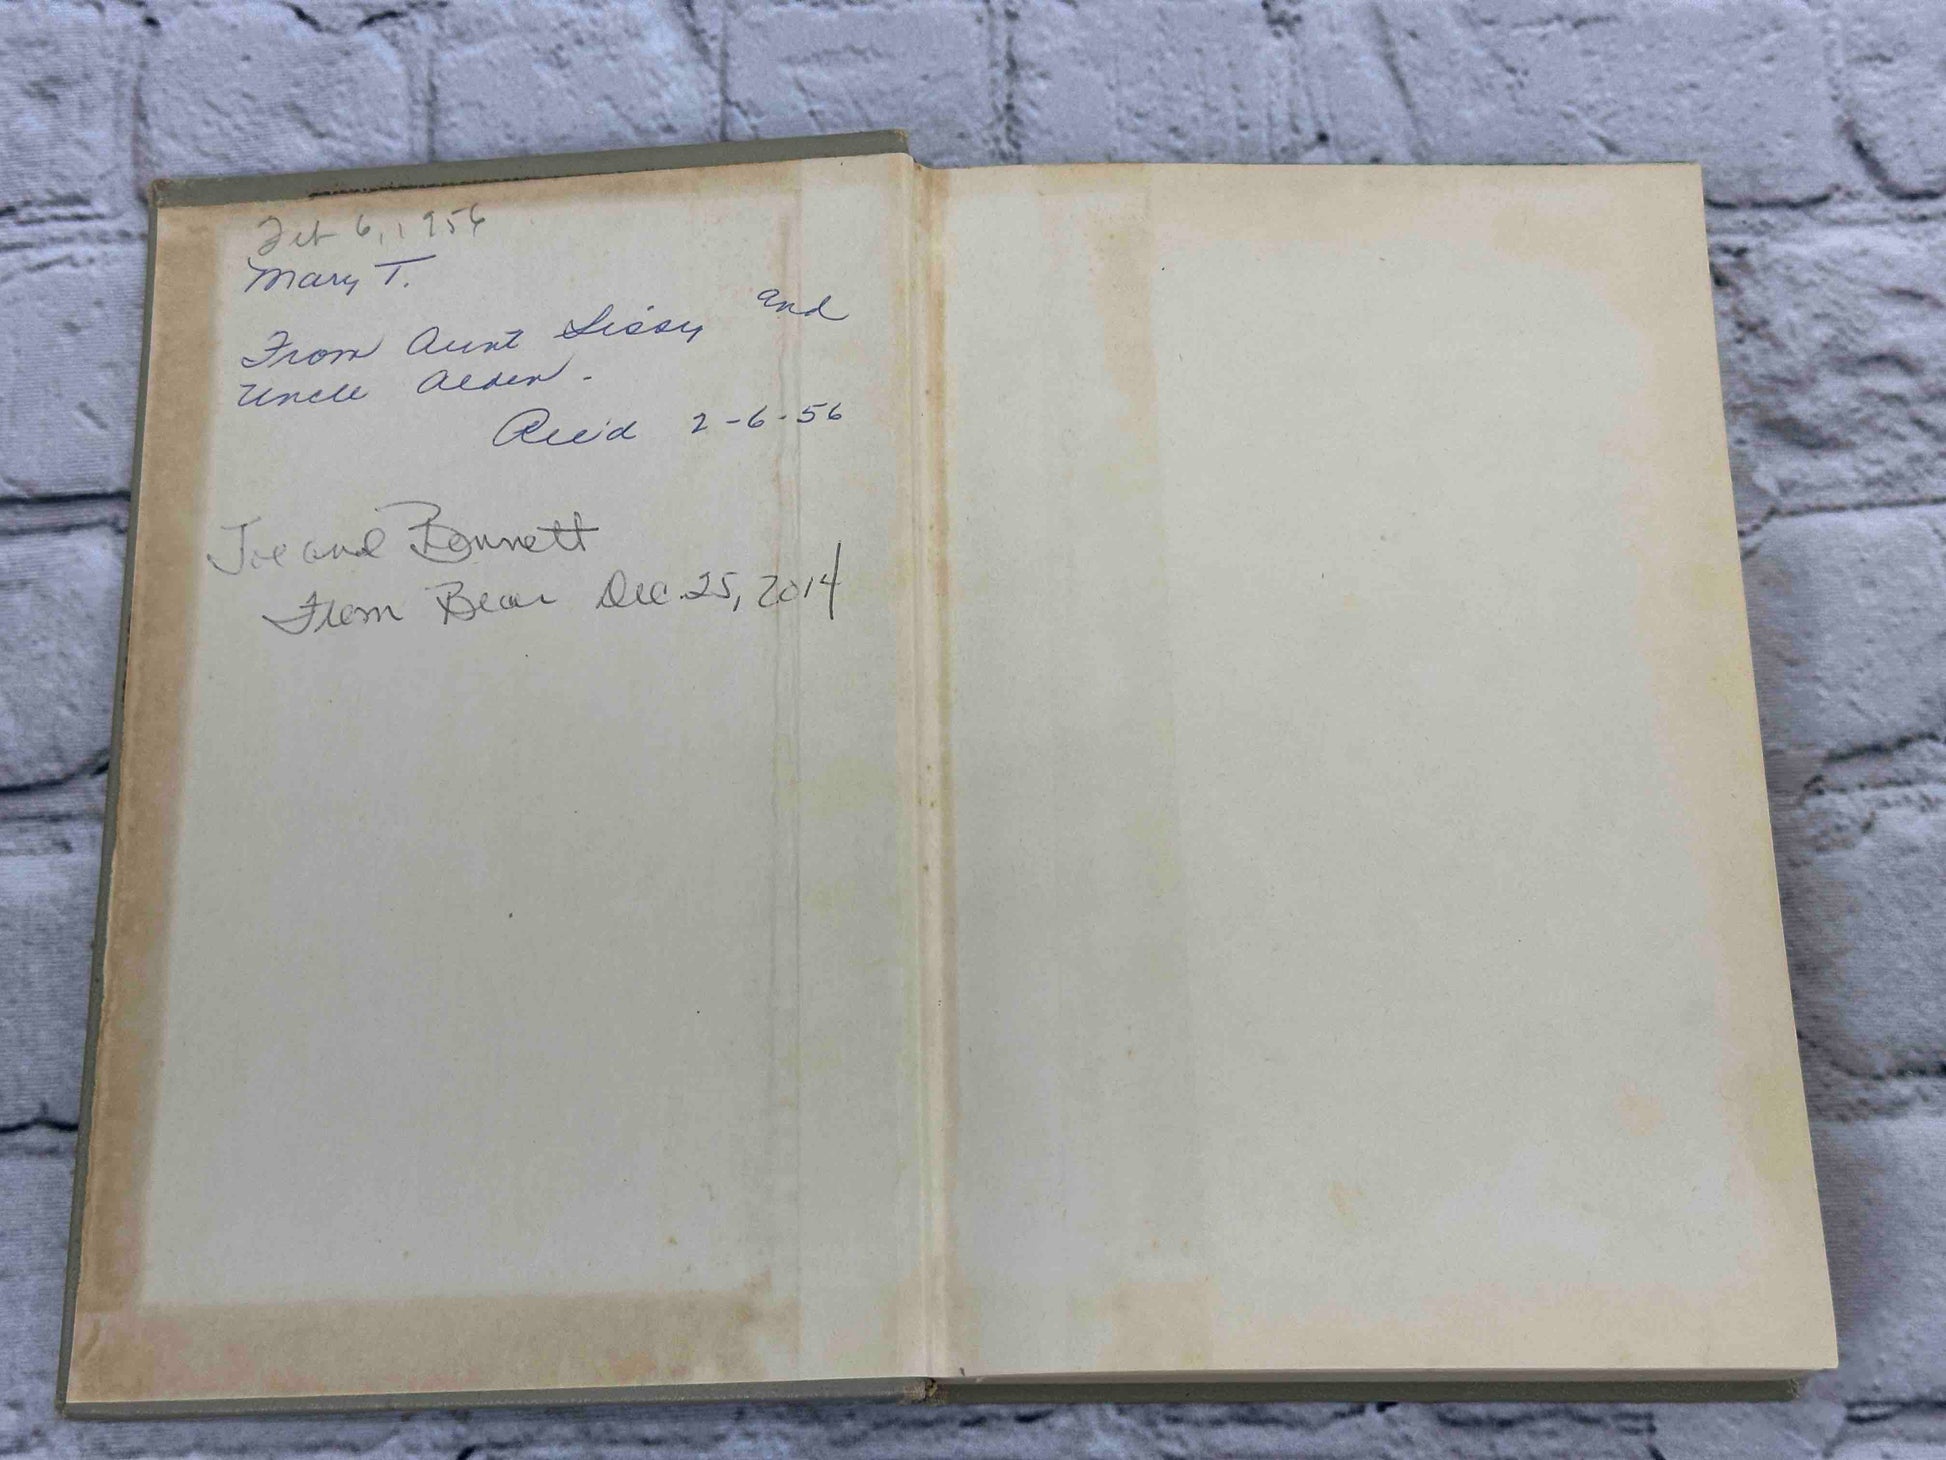 Feb 6, 1956
Mary T.
From Aunt Sissy and
Uncle Alden.
Rec'd 2-6-56
Joe and Bonnett
From Bear Dec. 25, 2014